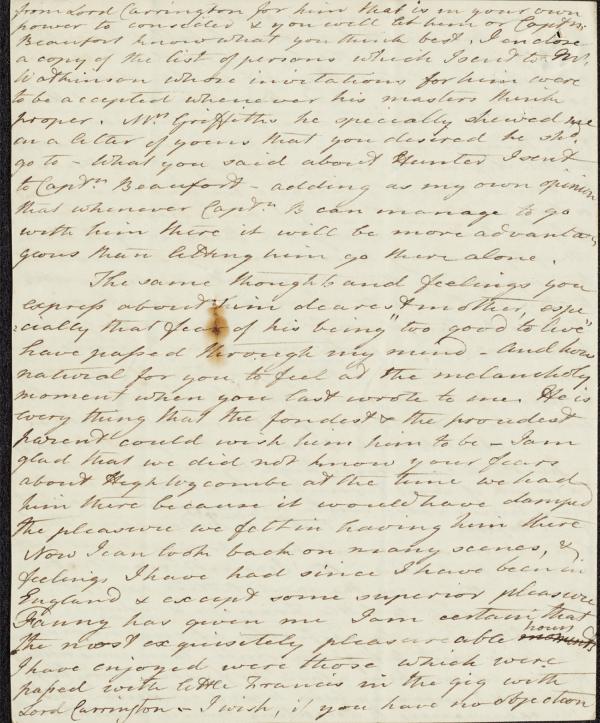 from Lord Carrington for him that is in your own
power to consider & you will let him or Captn.
Beaufort know what you think best. I enclose
a copy of the list of persons which I sent to Mr.
Watkinson whose invitations for him were
to be accepted whenever his masters think
proper. Mrs Griffiths he specially shewed me
in a letter of yours that you desired he shd.
go to - What you said about Hunter I sent
to Captn Beaufort - adding as my own opinion
that whenever Captn B can manage to go
with him there it will be more advanta
geous than letting him go there alone.
The same thoughts and feelings you
express about him dearest mother, espe
cially that fear of his being "too good to live"
have passed through my mind - And how
natural for you to feel at the melancholy
moment when you last wrote to me. He is
every thing that the fondest & the proudest
parent could wish him to be - I am
glad that we did not know your fears
about High Wycombe at the time we had
him there because it would have damped
the pleasure we felt in having him there
Now I can look back on many scenes, &
feelings I have had since I have been in
England & except some superior pleasure
Fanny has given me I am certain that
the most exquisitely pleasureable moments hours
I have enjoyed were those which were
passed with little Francis in the gig with
Lord Carrington - I wish, if you have no objection